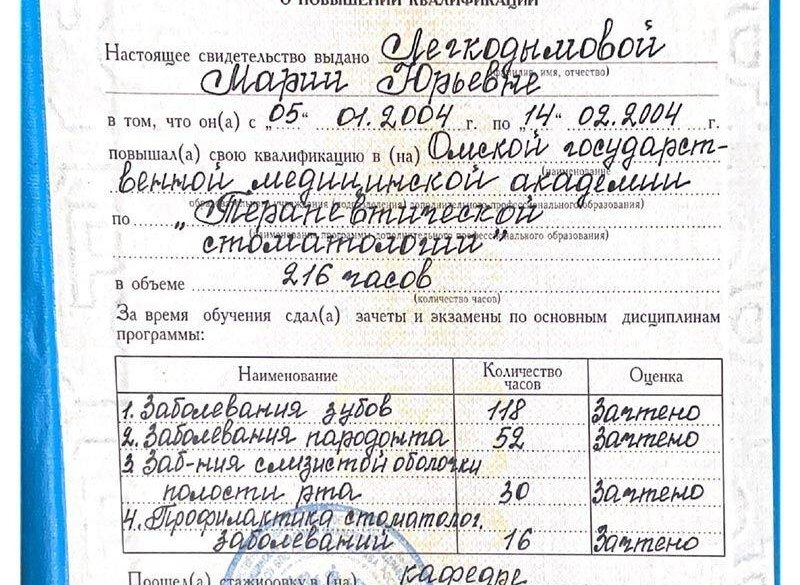 О ПОВЫШЕНИИ КВАЛИФИКАЦИИ
Настоящее свидетельство выдано Легкодымовой
(фамилия, имя, отчество)
Марии Юрьевне
в том, что он(а) с „05“ 01.2004 г. по „14“ 02.2004 г.
повышал(а) свою квалификацию в (на) Омской государст-
(наименование
венной медицинской академии
образовательного учреждения (подразделения) дополнительного профессионального образования)
по „Терапевтической
стоматологии“
(наименование программы дополнительного профессионального образования)
в объеме 216 часов
(количество часов)
За время обучения сдал(а) зачеты и экзамены по основным дисциплинам
программы:
Наименование Количество часов Оценка
1. Заболевания зубов 118 Зачтено
2. Заболевания пародонта 52 Зачтено
3. Заб-ния слизистой оболочки
полости рта 30 Зачтено
4. Профилактика стоматолог.
заболеваний 16 Зачтено
Прошел(а) стажировку в (на) кафедре